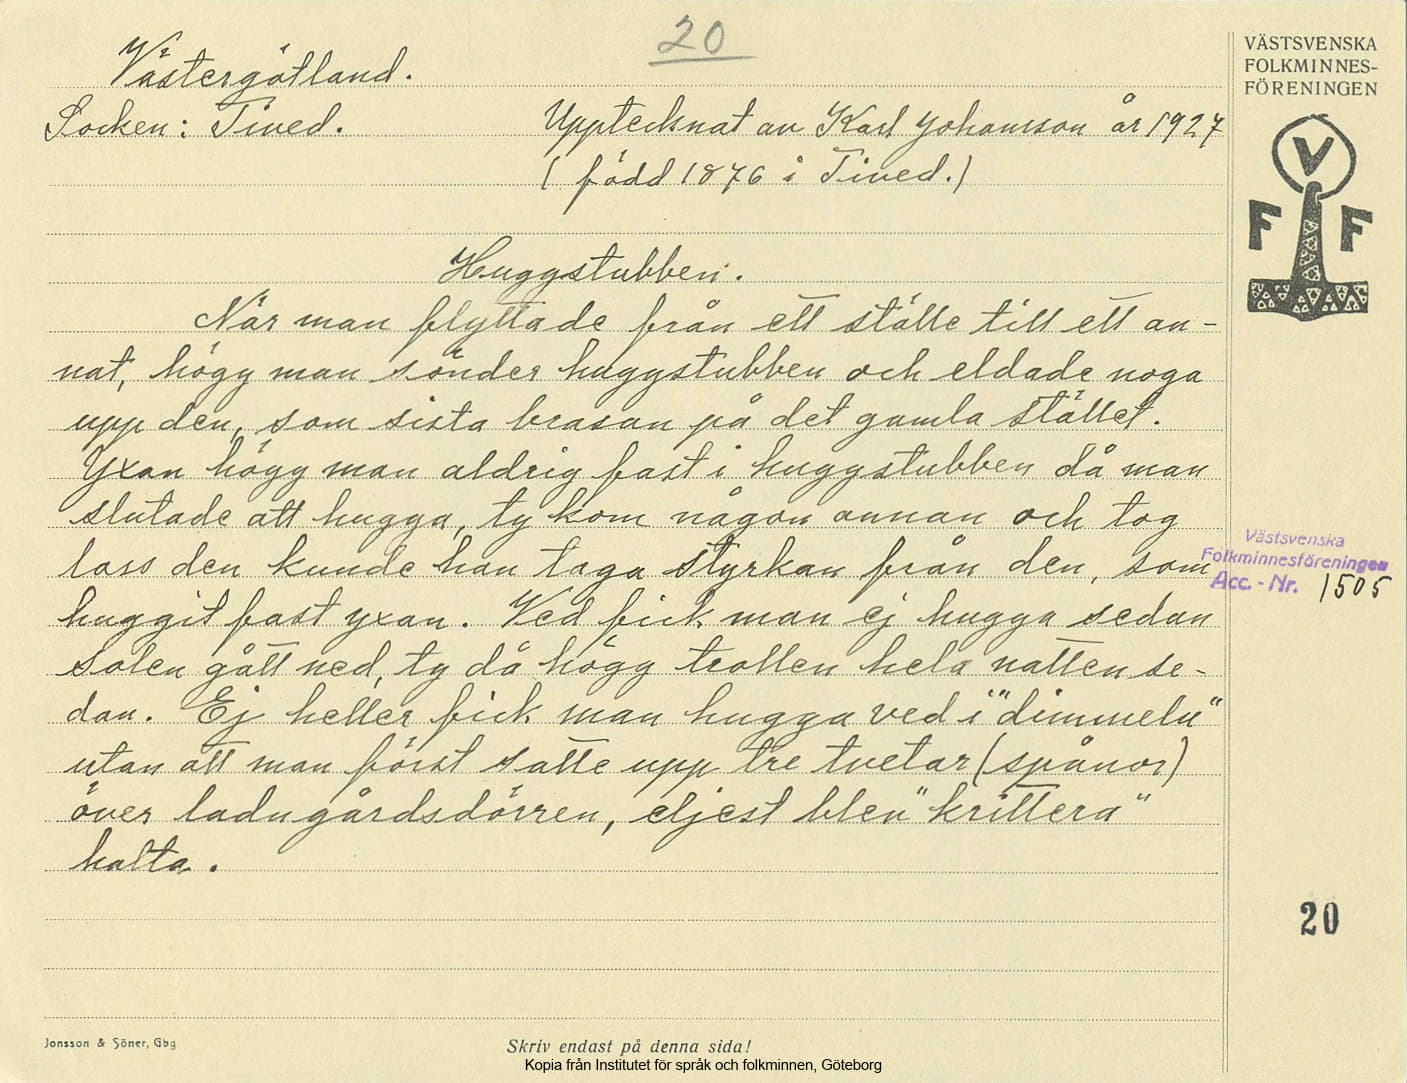 20
Västergötland.
Socken: Tived.
Upptecknat av Karl Johansson år 1927
( född 1876 i Tived.)
Huggstubben.
När man flyttade från ett ställe till ett an-
nat, högg man sönder huggstubben och eldade noga
upp den, som sista brasan på det gamla stället.
Yxan högg man aldrig fast i huggstubben då man
slutade att hugga, ty kom någon annan och tog
loss den kunde han taga styrkan från den, som
huggit fast yxan. Ved fick man ej hugga sedan
solen gått ned, ty då högg trollen hela natten se-
dan. Ej heller fick man hugga ved i "dimmeln"
utan att man först satte upp tre tvetar (spånor)
över ladugårdsdörren, eljest blev "krittera"
halta.
VÄSTSVENSKA
FOLKMINNES-
FÖRENINGEN
V
F F
Västsvenska
Folkminnesföreningen
Acc. - Nr. 1505
20
Jonsson & Söner, Gbg
Skriv endast på denna sida!
Kopia från Institutet för språk och folkminnen, Göteborg